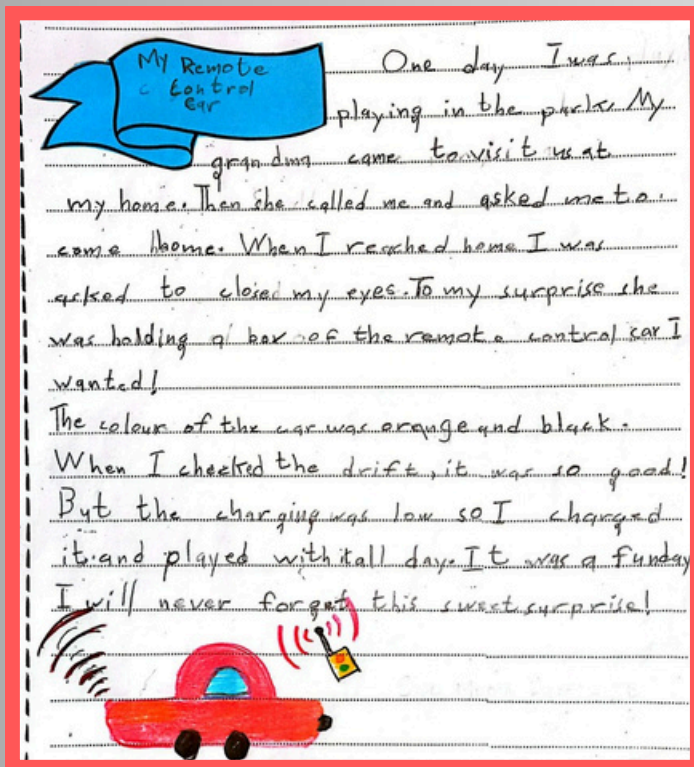 My Remote
Control
Car
One day I was
playing in the park. My
grandma came to visit us at
my home. Then she called me and asked me to
come home. When I reached home I was
asked to closed my eyes. To my surprise she
was holding a box of the remote control car I
wanted!
The colour of the car was orange and black.
When I checked the drift, it was so good!
But the charging was low so I charged
it and played with it all day. It was a funday
I will never forget this sweet surprise!